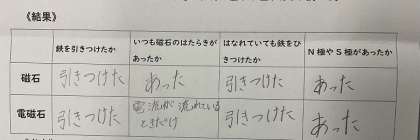 《結果》
鉄を引きつけたか
いつも磁石のはたらきがあったか
はなれていても鉄をひきつけたか
N極やS極があったか
磁石
引きつけた
あった
引きつけた
あった
電磁石
引きつけた
電流が流れている
ときだけ
引きつけた
あった